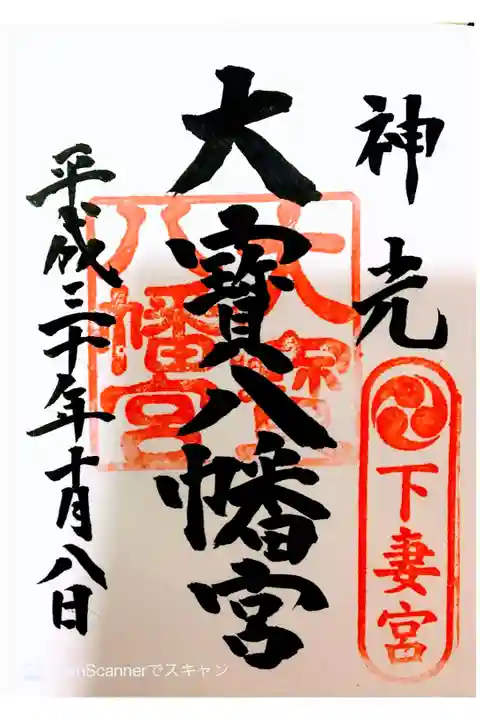 神光
下妻宮
大寳八幡宮
大寳
八幡宮
平成三十年十月八日
Scannerでスキャン